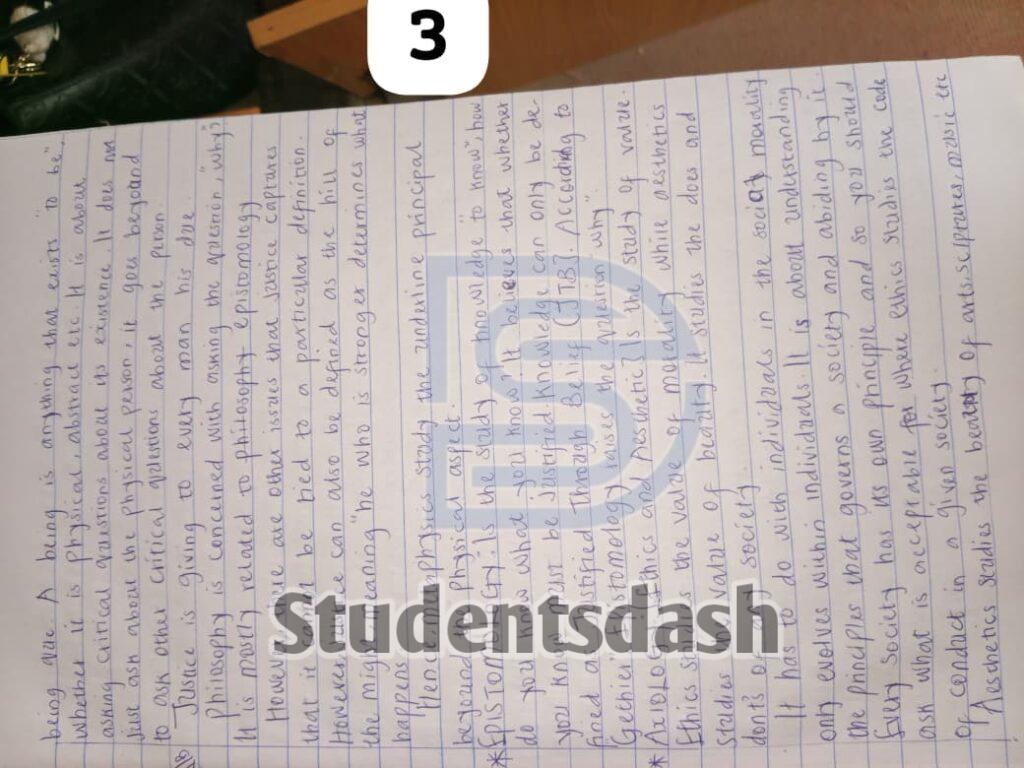 3
being que. A being is anything that exists "to be".
whether it is physical, abstract etc. It is about
asking critical questions about its existence. It does not
just ask about the physical person, it goes beyound
to ask other critical questions about the person
Justice is giving to every man his due.
Philosophy is concerned with asking the question "why?"
It is mostly related to philosophy epistomology
However, there are other issues that Justice captures
that it can't be tied to a particular definition.
However, Justice can also be defined as the will of
the might meaning "he who is stronger determines what
happens
Hence metaphysics study the underline principal
beyound physical aspect.
* EPISTOMOLOGY: Is the study of knowledge "to know", how
do you know what you know? It believes that whether
you know must be justified. Knowledge can only be de-
fined as Justified Through Belief (JTB). According to
Gethier "Epistomology raises the question why"
* AXIOLOGY [Ethics and Aesthetic] Is the study of value.
Ethics studies the value of morality while aesthetics
studies the value of beauty. It studies the does and
donts of any society.
It has to do with individuals in the society morality
only evolves within individuals. It is about understanding
the principles that governs a society and abiding by it.
Every society has its own principle and so you should
ask what is acceptable for where ethics studies the code
of conduct in a given society.
Aesthetics studies the beauty of arts, sculptures, music etc
Studentsdash